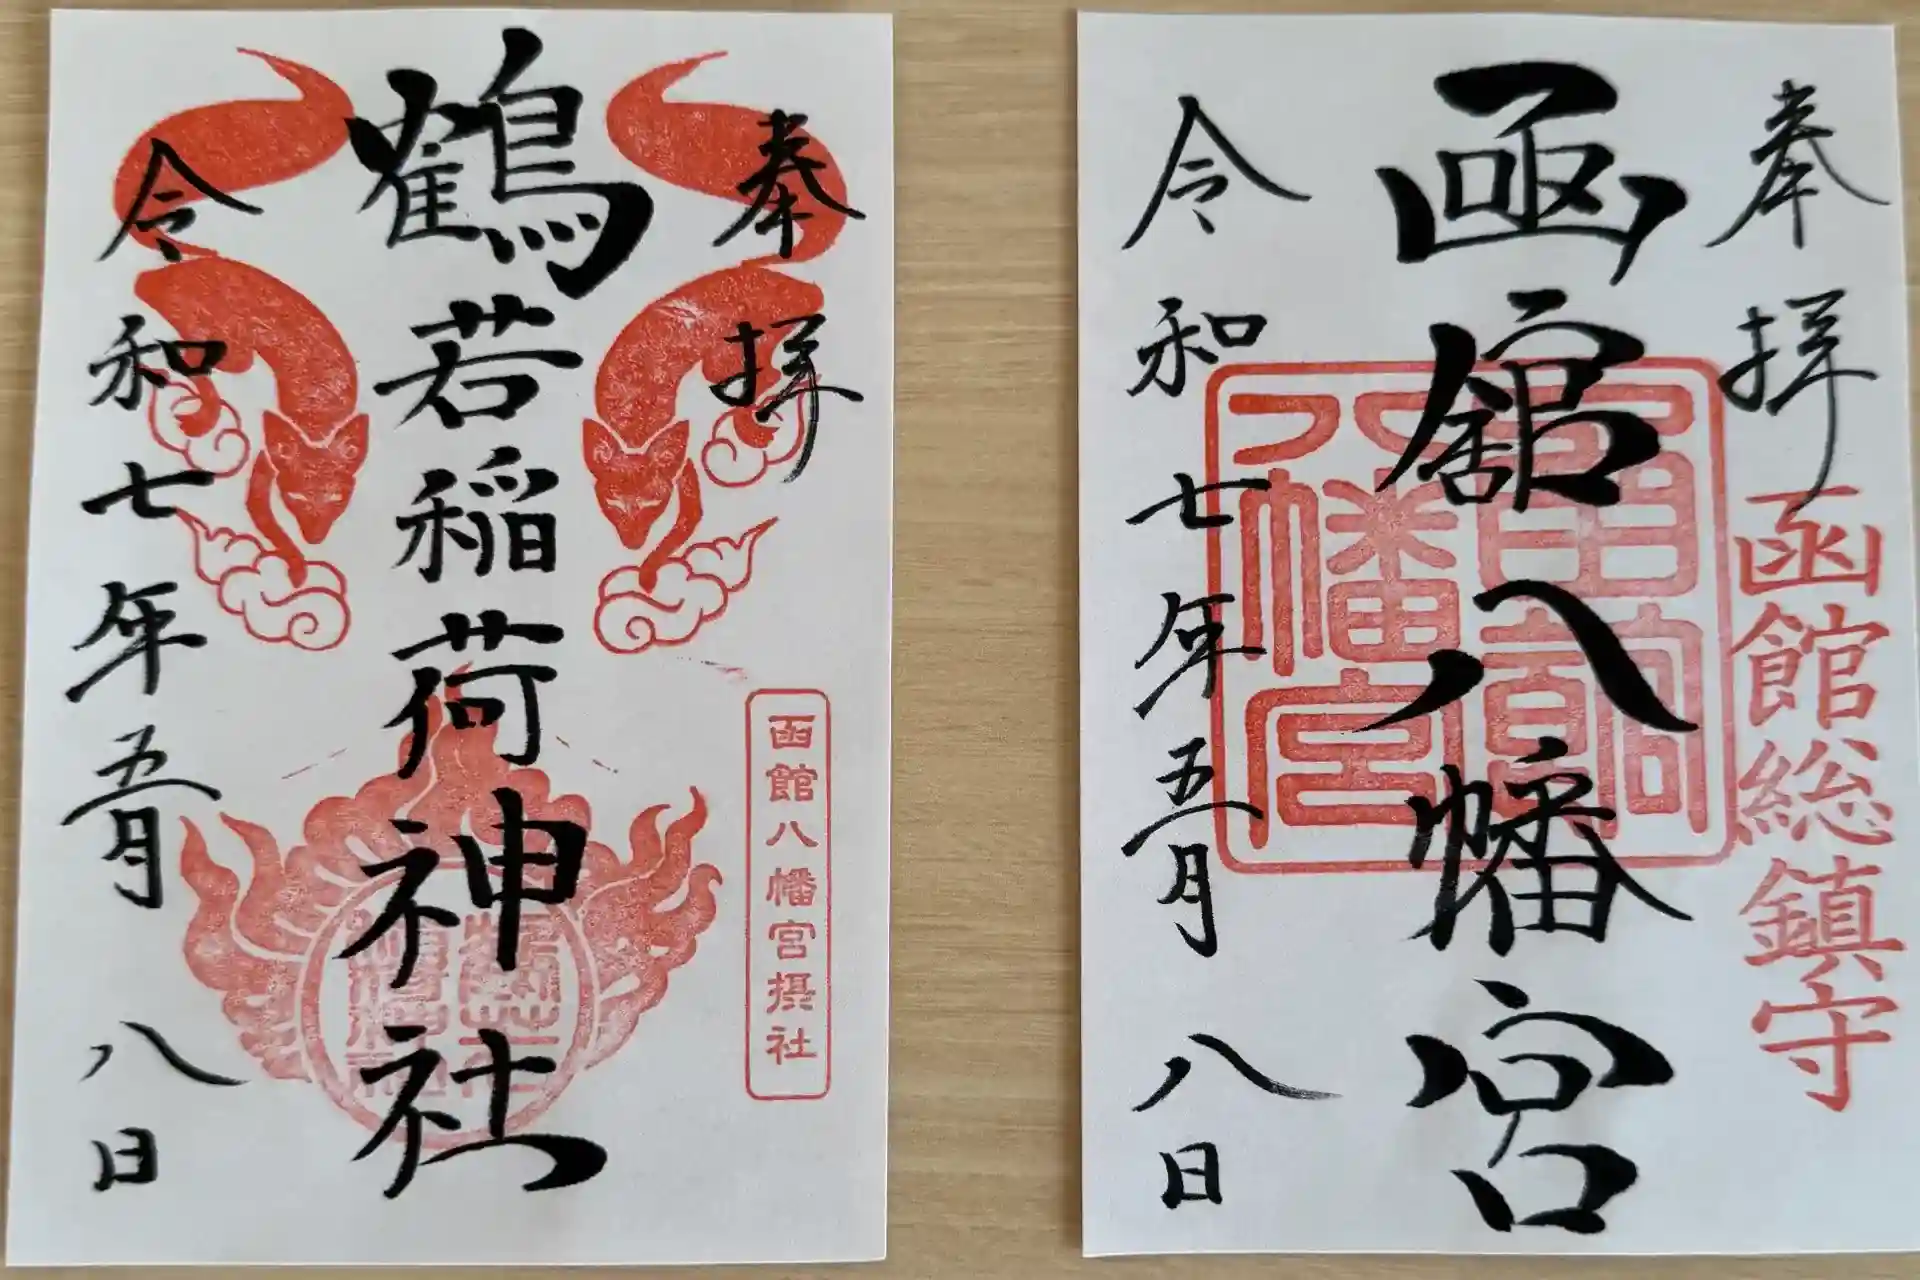 奉拝
鶴若稲荷神社
令和七年五月八日
函館八幡宮摂社
奉拝
函館八幡宮
令和七年五月八日
函館総鎮守